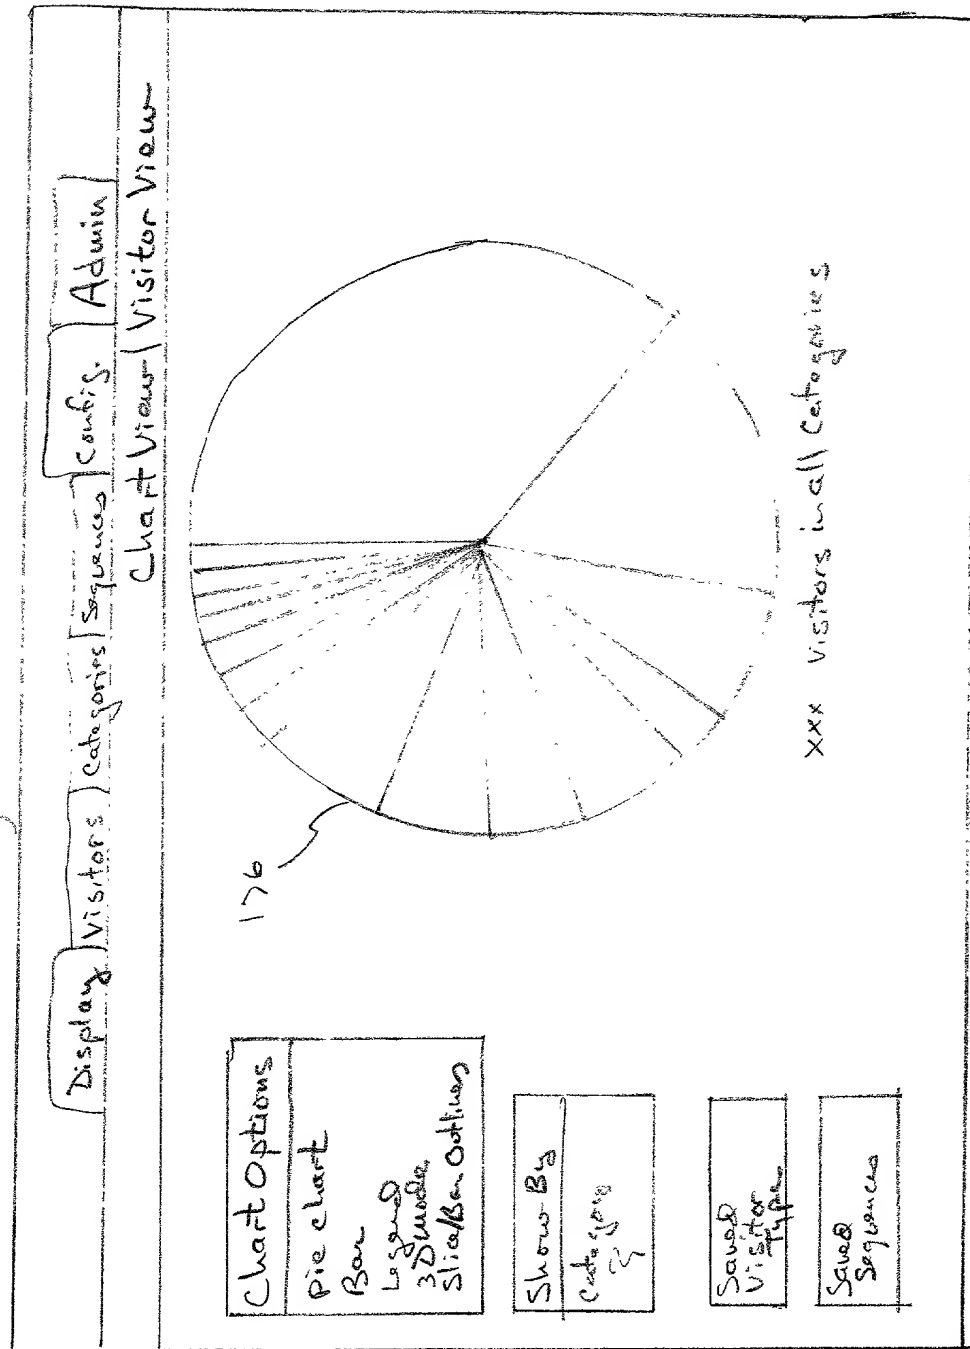 Display Visitors Categories Sequences Config. Admin
Chart View Visitor View
Chart Options
Pie Chart
Bar
Legend
3D mode
Slice/Bar Outlines
Show By
Category
Saved
Visitor
Type
Saved
Sequences
176
xxx Visitors in all Categories